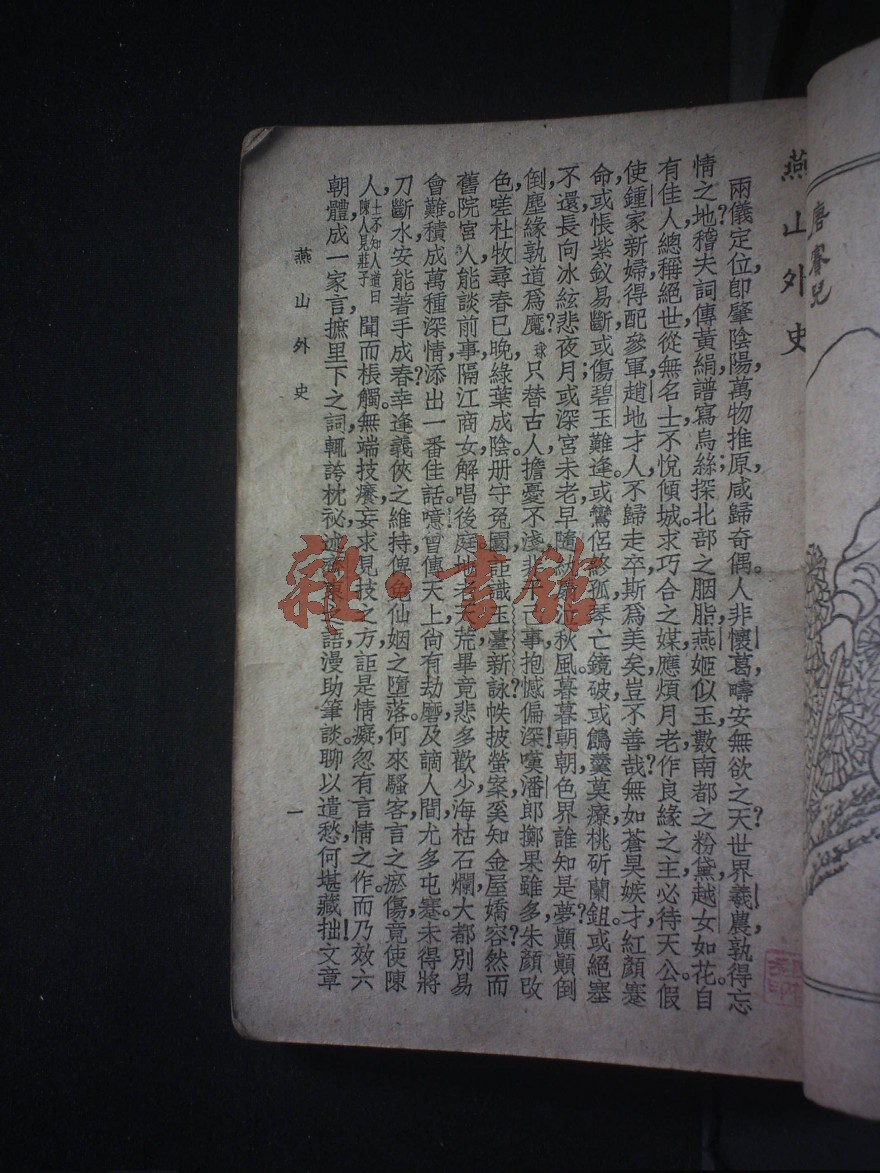 燕山外史
兩儀定位,卽肇陰陽,萬物推原,咸歸奇偶。人非懷葛,疇安無欲之天?世界羲農,孰得忘
情之地?稽夫詞傳黃絹,譜寫烏絲;探北部之胭脂,燕姬似玉,數南都之粉黛,越女如花。自
有佳人,總稱絕世,從無名士,不悅傾城。求巧合之媒,應煩月老,作良緣之主,必待天公。假
使鍾家新婦,得配參軍,趙地才人,不歸走卒,斯爲美矣,豈不善哉?無如蒼昊嫉才,紅顏蹇
命,或悵紫釵易斷,或傷碧玉難逢。或鸞侶終孤,琴亡鏡破,或鶬羹莫療,桃斫蘭鉏,或絕塞
不還,長向冰絃悲夜月;或深宮未老,早隨紈扇泣秋風。暮暮朝朝,色界誰知是夢?顚顚倒
倒,塵緣孰道爲魔?球只替古人擔憂不淺,非干己事,抱憾偏深!嘆潘郎擲果雖多,朱顏改
色,嗟杜牧尋春已晚,綠葉成陰。册守兔園,詎識玉臺新詠?帙披螢案,奚知金屋嬌容?然而
舊院宮人,能談前事,隔江商女,解唱後庭。地老天荒,畢竟悲多歡少,海枯石爛,大都別易
會難。積成萬種深情,添出一番佳話。噫!曾傳天上,尙有劫磨,及謫人間,尤多屯蹇。未得將
刀斷水,安能著手成春?幸逢義俠之維持,俾免仙姻之墮落。何來騷客,言之瘀傷,竟使陳
人,士不知人道曰陳人見莊子聞而棖觸。無端技癢,妄求見技之方,詎是情癡,忽有言情之作。而乃效六
朝體,成一家言,摭里下之詞,輒誇枕祕,述之語,漫助筆談。聊以遣愁,何堪藏拙!文章
燕山外史
一
唐賽兒
雜·書館